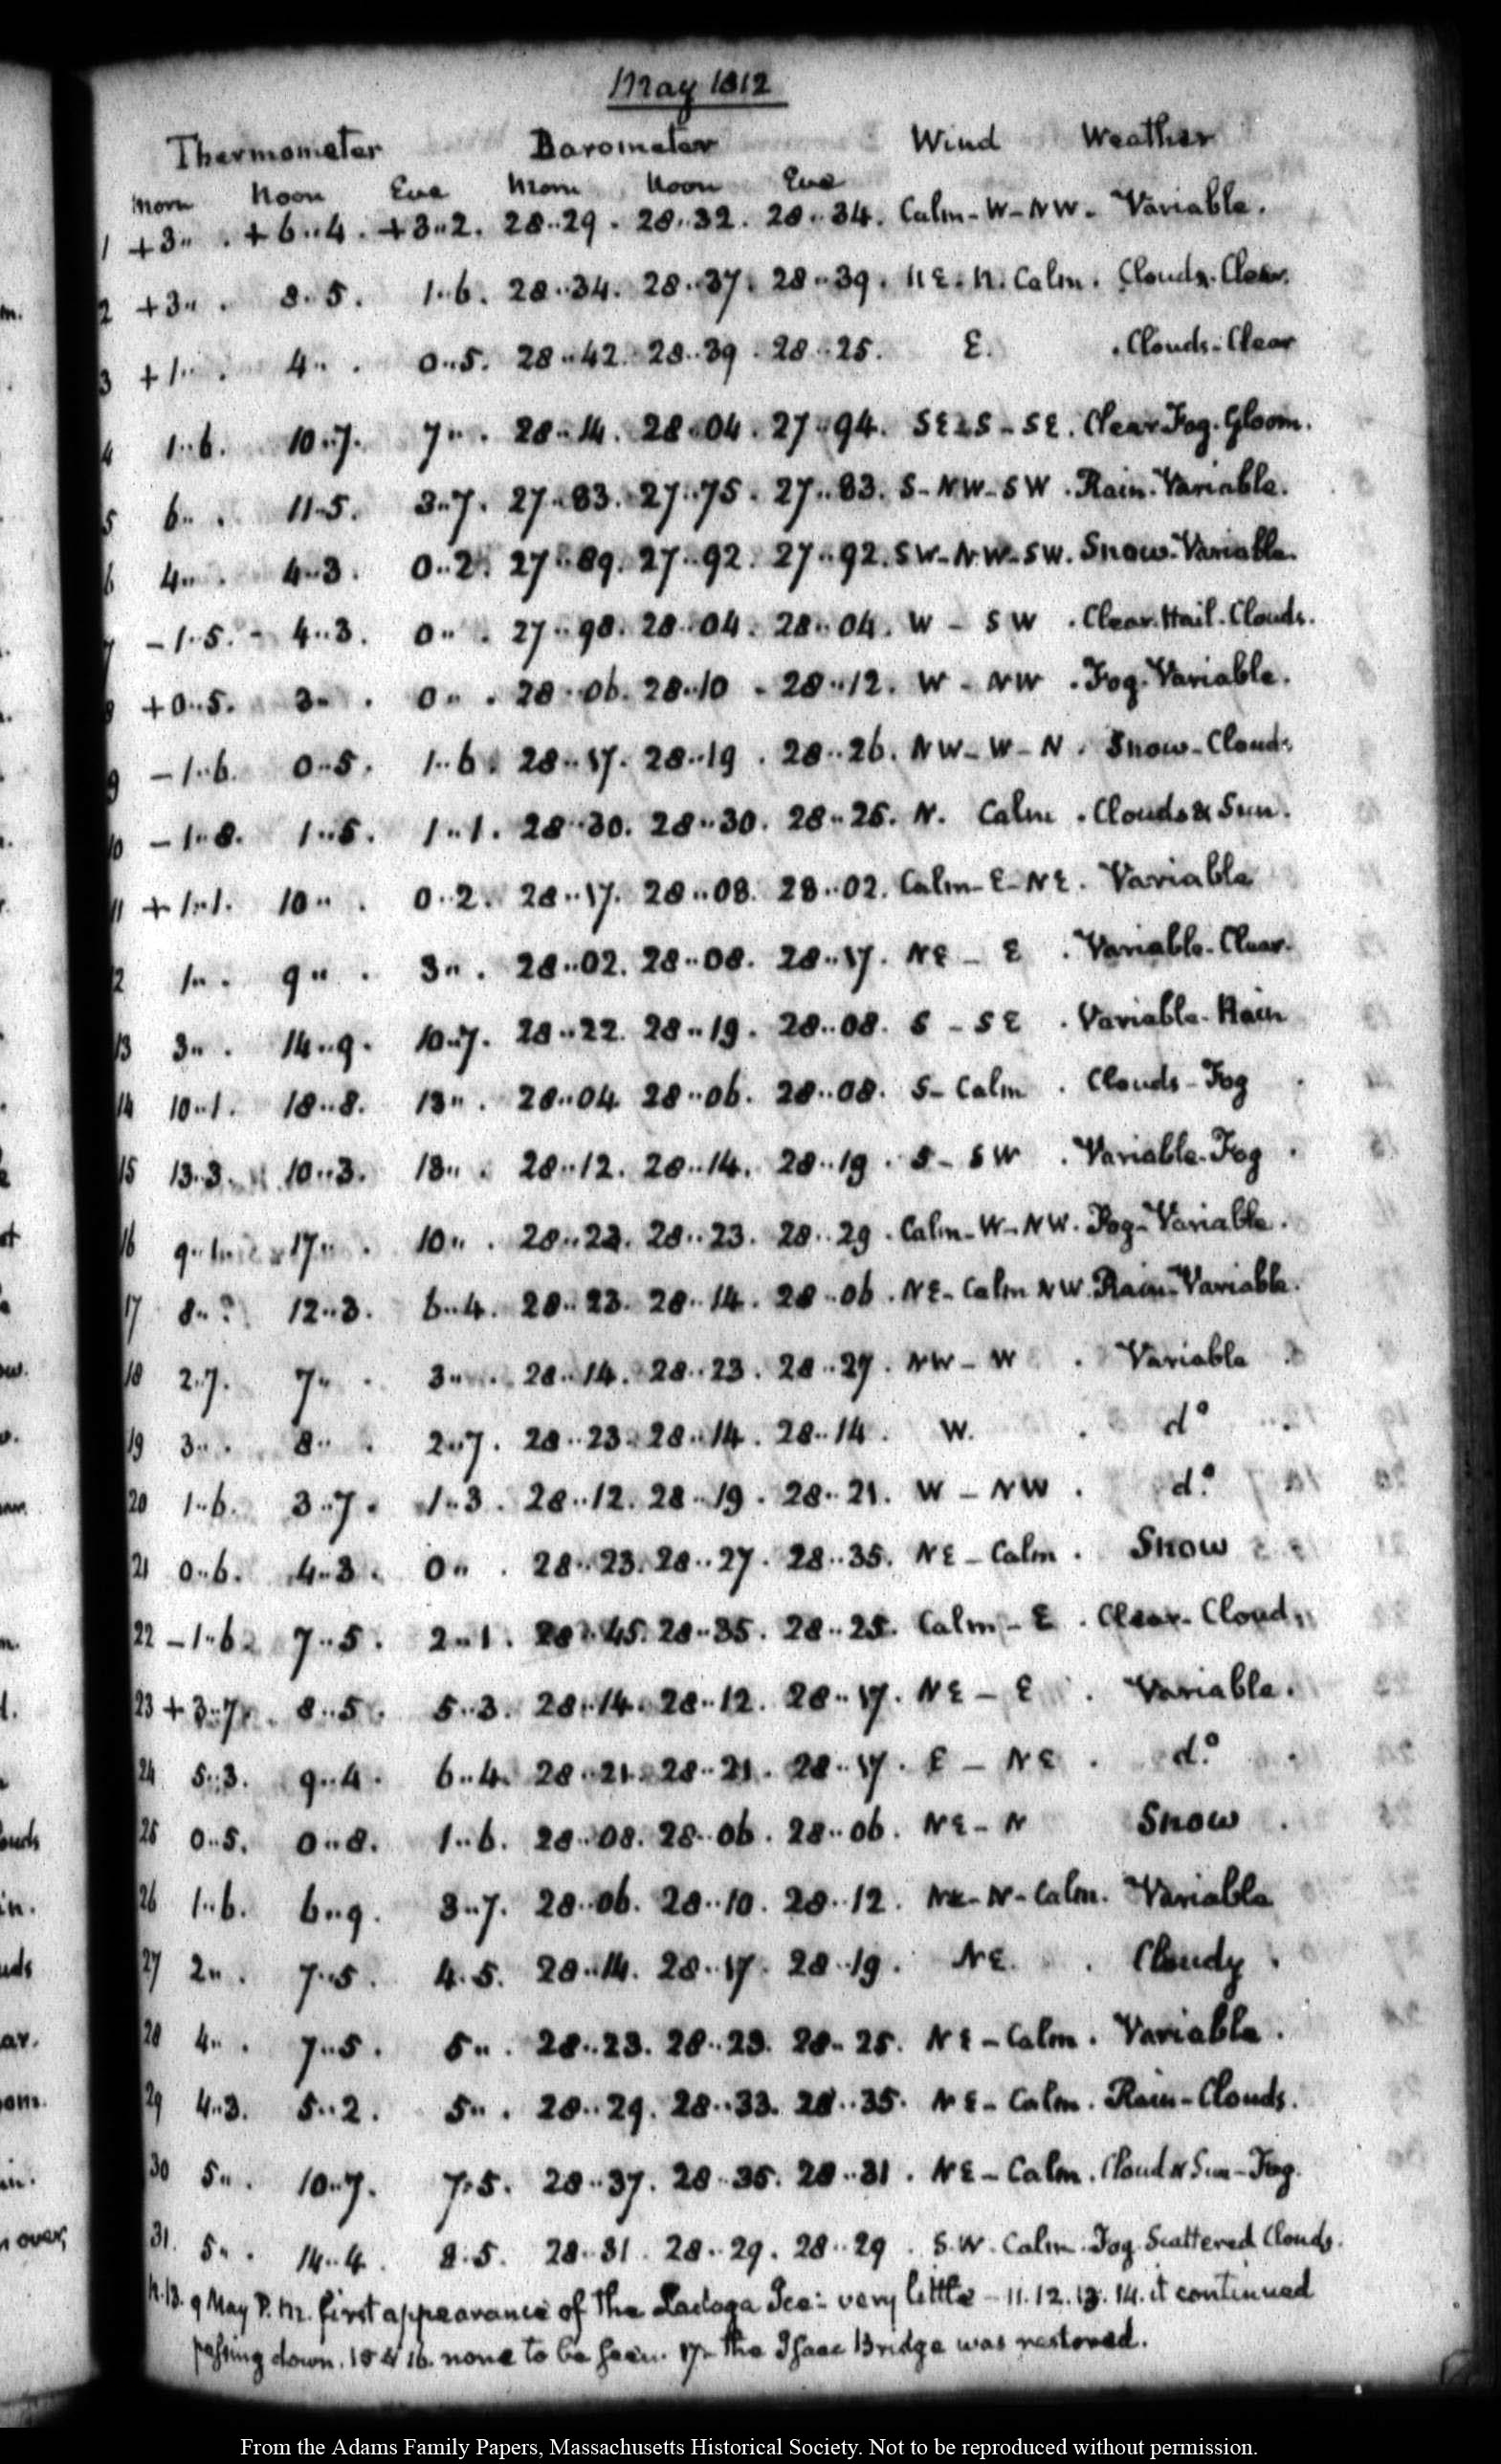 May 1812
Thermometer Barometer Wind Weather
Morn Noon Eve Morn Noon Eve
1 +3.. . +6..4. +3..2. 28..29. 28..32. 28..34. Calm-W-NW. Variable.
2 +3.. . 8..5. 1..6. 28..34. 28..37. 28..39. NE. N. Calm. Clouds. Clear.
3 +1.. . 4.. . 0..5. 28..42. 28..39. 28..25. E. Clouds-Clear
4 1..6. 10..7. 7.. . 28..14. 28..04. 27..94. SE&S-SE. Clear Fog. Gloom.
5 6.. . 11..5. 3..7. 27..83. 27..75. 27..83. S-NW-SW. Rain. Variable.
6 4.. . 4..3. 0..2. 27..89. 27..92. 27..92. SW-NW-SW. Snow-Variable.
7 -1..5. 4..3. 0.. . 27..98. 28..04. 28..04. W - SW. Clear. Hail. Clouds.
8 +0..5. 3.. . 0.. . 28..06. 28..10. 28..12. W - NW. Fog. Variable.
9 -1..6. 0..5. 1..6. 28..17. 28..19. 28..26. NW-W-N. Snow-Clouds
10 -1..8. 1..5. 1..1. 28..30. 28..30. 28..25. N. Calm. Clouds & Sun.
11 +1..1. 10.. . 0..2. 28..17. 28..08. 28..02. Calm-E-NE. Variable
12 1.. . 9.. . 3.. . 28..02. 28..08. 28..17. NE - E. Variable-Clear.
13 3.. . 14..9. 10..7. 28..22. 28..19. 28..08. S - SE. Variable-Rain
14 10..1. 18..8. 13.. . 28..04 28..06. 28..08. S-Calm. Clouds-Fog
15 13..3. 10..3. 13.. . 28..12. 28..14. 28..19. S-SW. Variable-Fog
16 9.. 17.. . 10.. . 28..23. 28..23. 28..29. Calm-W-NW. Fog-Variable.
17 8.. 12..3. 6..4. 28..23. 28..14. 28..06. NE-Calm NW. Rain-Variable.
18 2..7. 7.. . 3.. . 28..14. 28..23. 28..27. NW-W. Variable
19 3.. . 8.. . 2..7. 28..23. 28..14. 28..14. W. do
20 1..6. 3..7. 1..3. 28..12. 28..19. 28..21. W - NW. do.
21 0..6. 4..3. 0.. . 28..23. 28..27. 28..35. NE-Calm. Snow
22 -1..6 7..5. 2..1. 28..45. 28..35. 28..25. Calm-E. Clear-Clouds
23 +3..7. 8..5. 5..3. 28..14. 28..12. 28..17. NE - E. Variable.
24 5..3. 9..4. 6..4. 28..21. 28..21. 28..17. E - NE. do.
25 0..5. 0..8. 1..6. 28..08. 28..06. 28..06. NE-N Snow.
26 1..6. 6..9. 3..7. 28..06. 28..10. 28..12. NE-N-Calm. Variable
27 2.. . 7..5. 4..5. 28..14. 28..17. 28..19. NE. Cloudy.
28 4.. . 7..5. 5.. . 28..23. 28..23. 28..25. NE-Calm. Variable.
29 4..3. 5..2. 5.. . 28..29. 28..33. 28..35. NE-Calm. Rain-Clouds.
30 5.. . 10..7. 7..5. 28..37. 28..35. 28..31. NE-Calm. Cloud & Sun-Fog.
31. 5.. . 14..4. 8..5. 28..31. 28..29. 28..29. S.W. Calm. Fog Scattered Clouds.
N.B. 9 May P.M. first appearance of the Ladoga Ice: very little - 11. 12. 13. 14. it continued
passing down. 15 & 16. none to be seen. 17. the Isaac Bridge was restored.
From the Adams Family Papers, Massachusetts Historical Society. Not to be reproduced without permission.